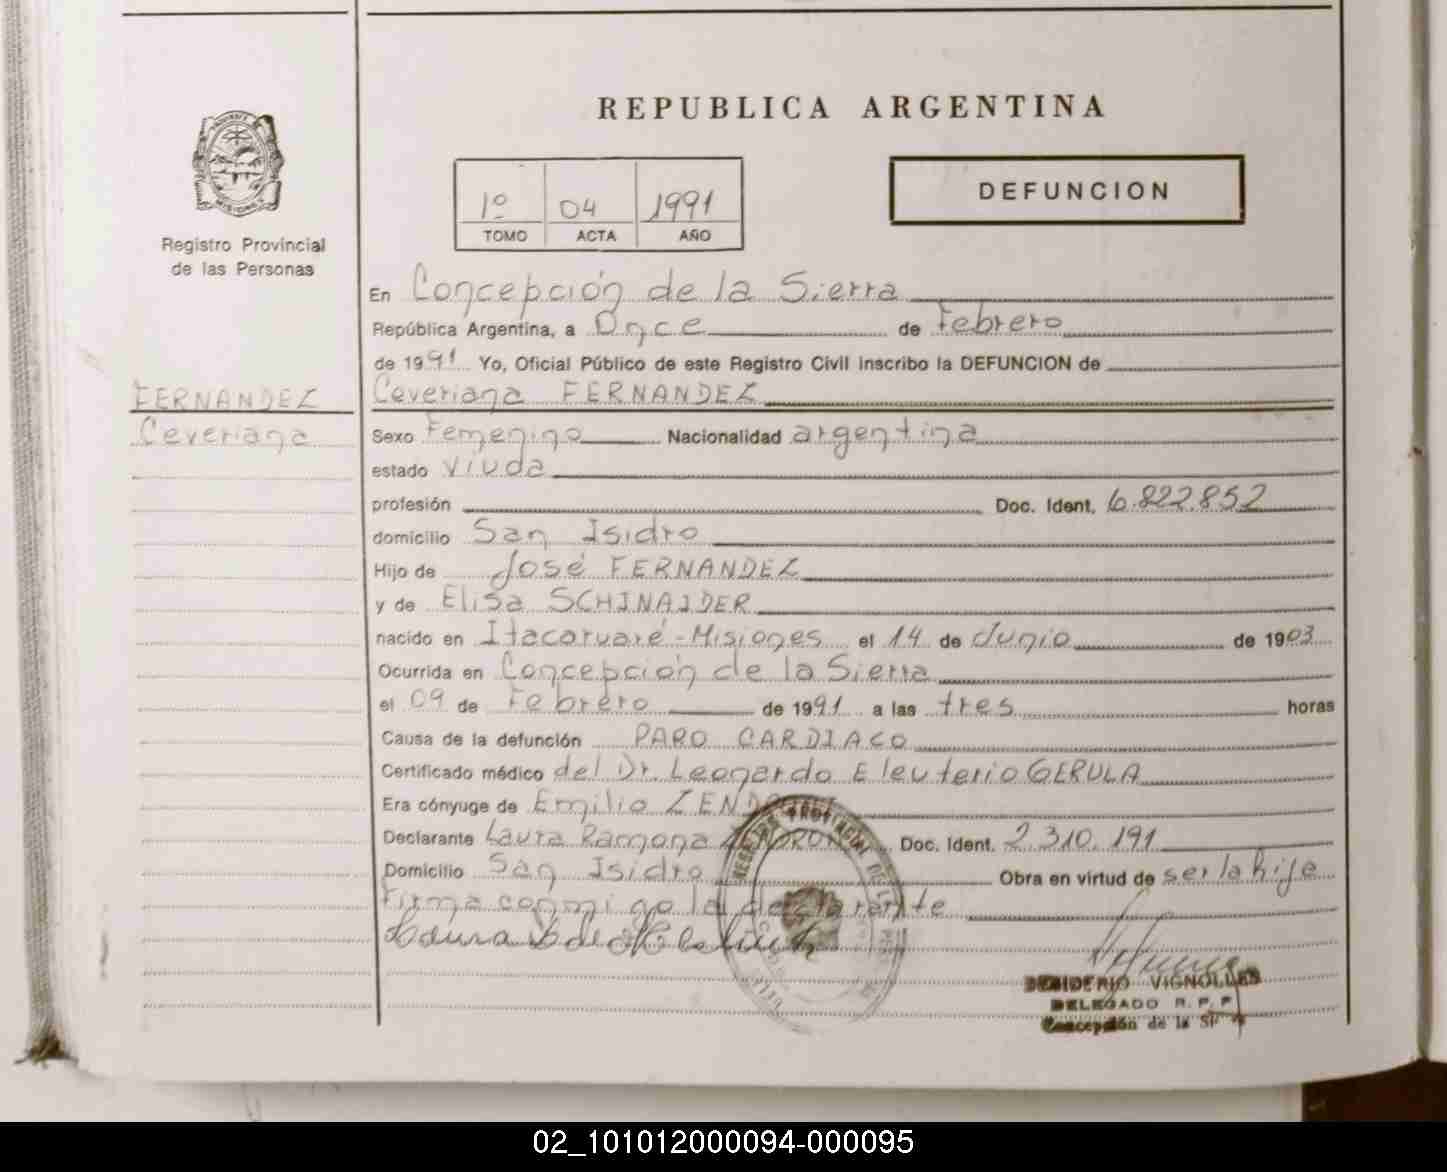 REPUBLICA ARGENTINA
1º 04 1991
TOMO ACTA AÑO
DEFUNCION
Registro Provincial
de las Personas
FERNANDEZ
Ceveriana
En Concepción de la Sierra
República Argentina, a Once de Febrero
de 1991 Yo, Oficial Público de este Registro Civil inscribo la DEFUNCION de
Ceveriana FERNANDEZ
Sexo Femenino Nacionalidad argentina
estado Viuda
profesión Doc. Ident. 6.822.852
domicilio San Isidro
Hijo de José FERNANDEZ
y de Elisa SCHINAIDER
nacido en Itacaruaré-Misiones el 14 de Junio de 1903
Ocurrida en Concepción de la Sierra
el 09 de Febrero de 1991 a las tres horas
Causa de la defunción PARO CARDIACO
Certificado médico del Dr. Leonardo Eleuterio GERULA
Era cónyuge de Emilio
Declarante Laura Ramona Doc. Ident. 2.310.191
Domicilio San Isidro Obra en virtud de ser la hija
Firma conmigo la declarante
Laura
DESIDERIO VIGNOLLES
DELEGADO R. P. P
Concepción de la
02_101012000094-000095